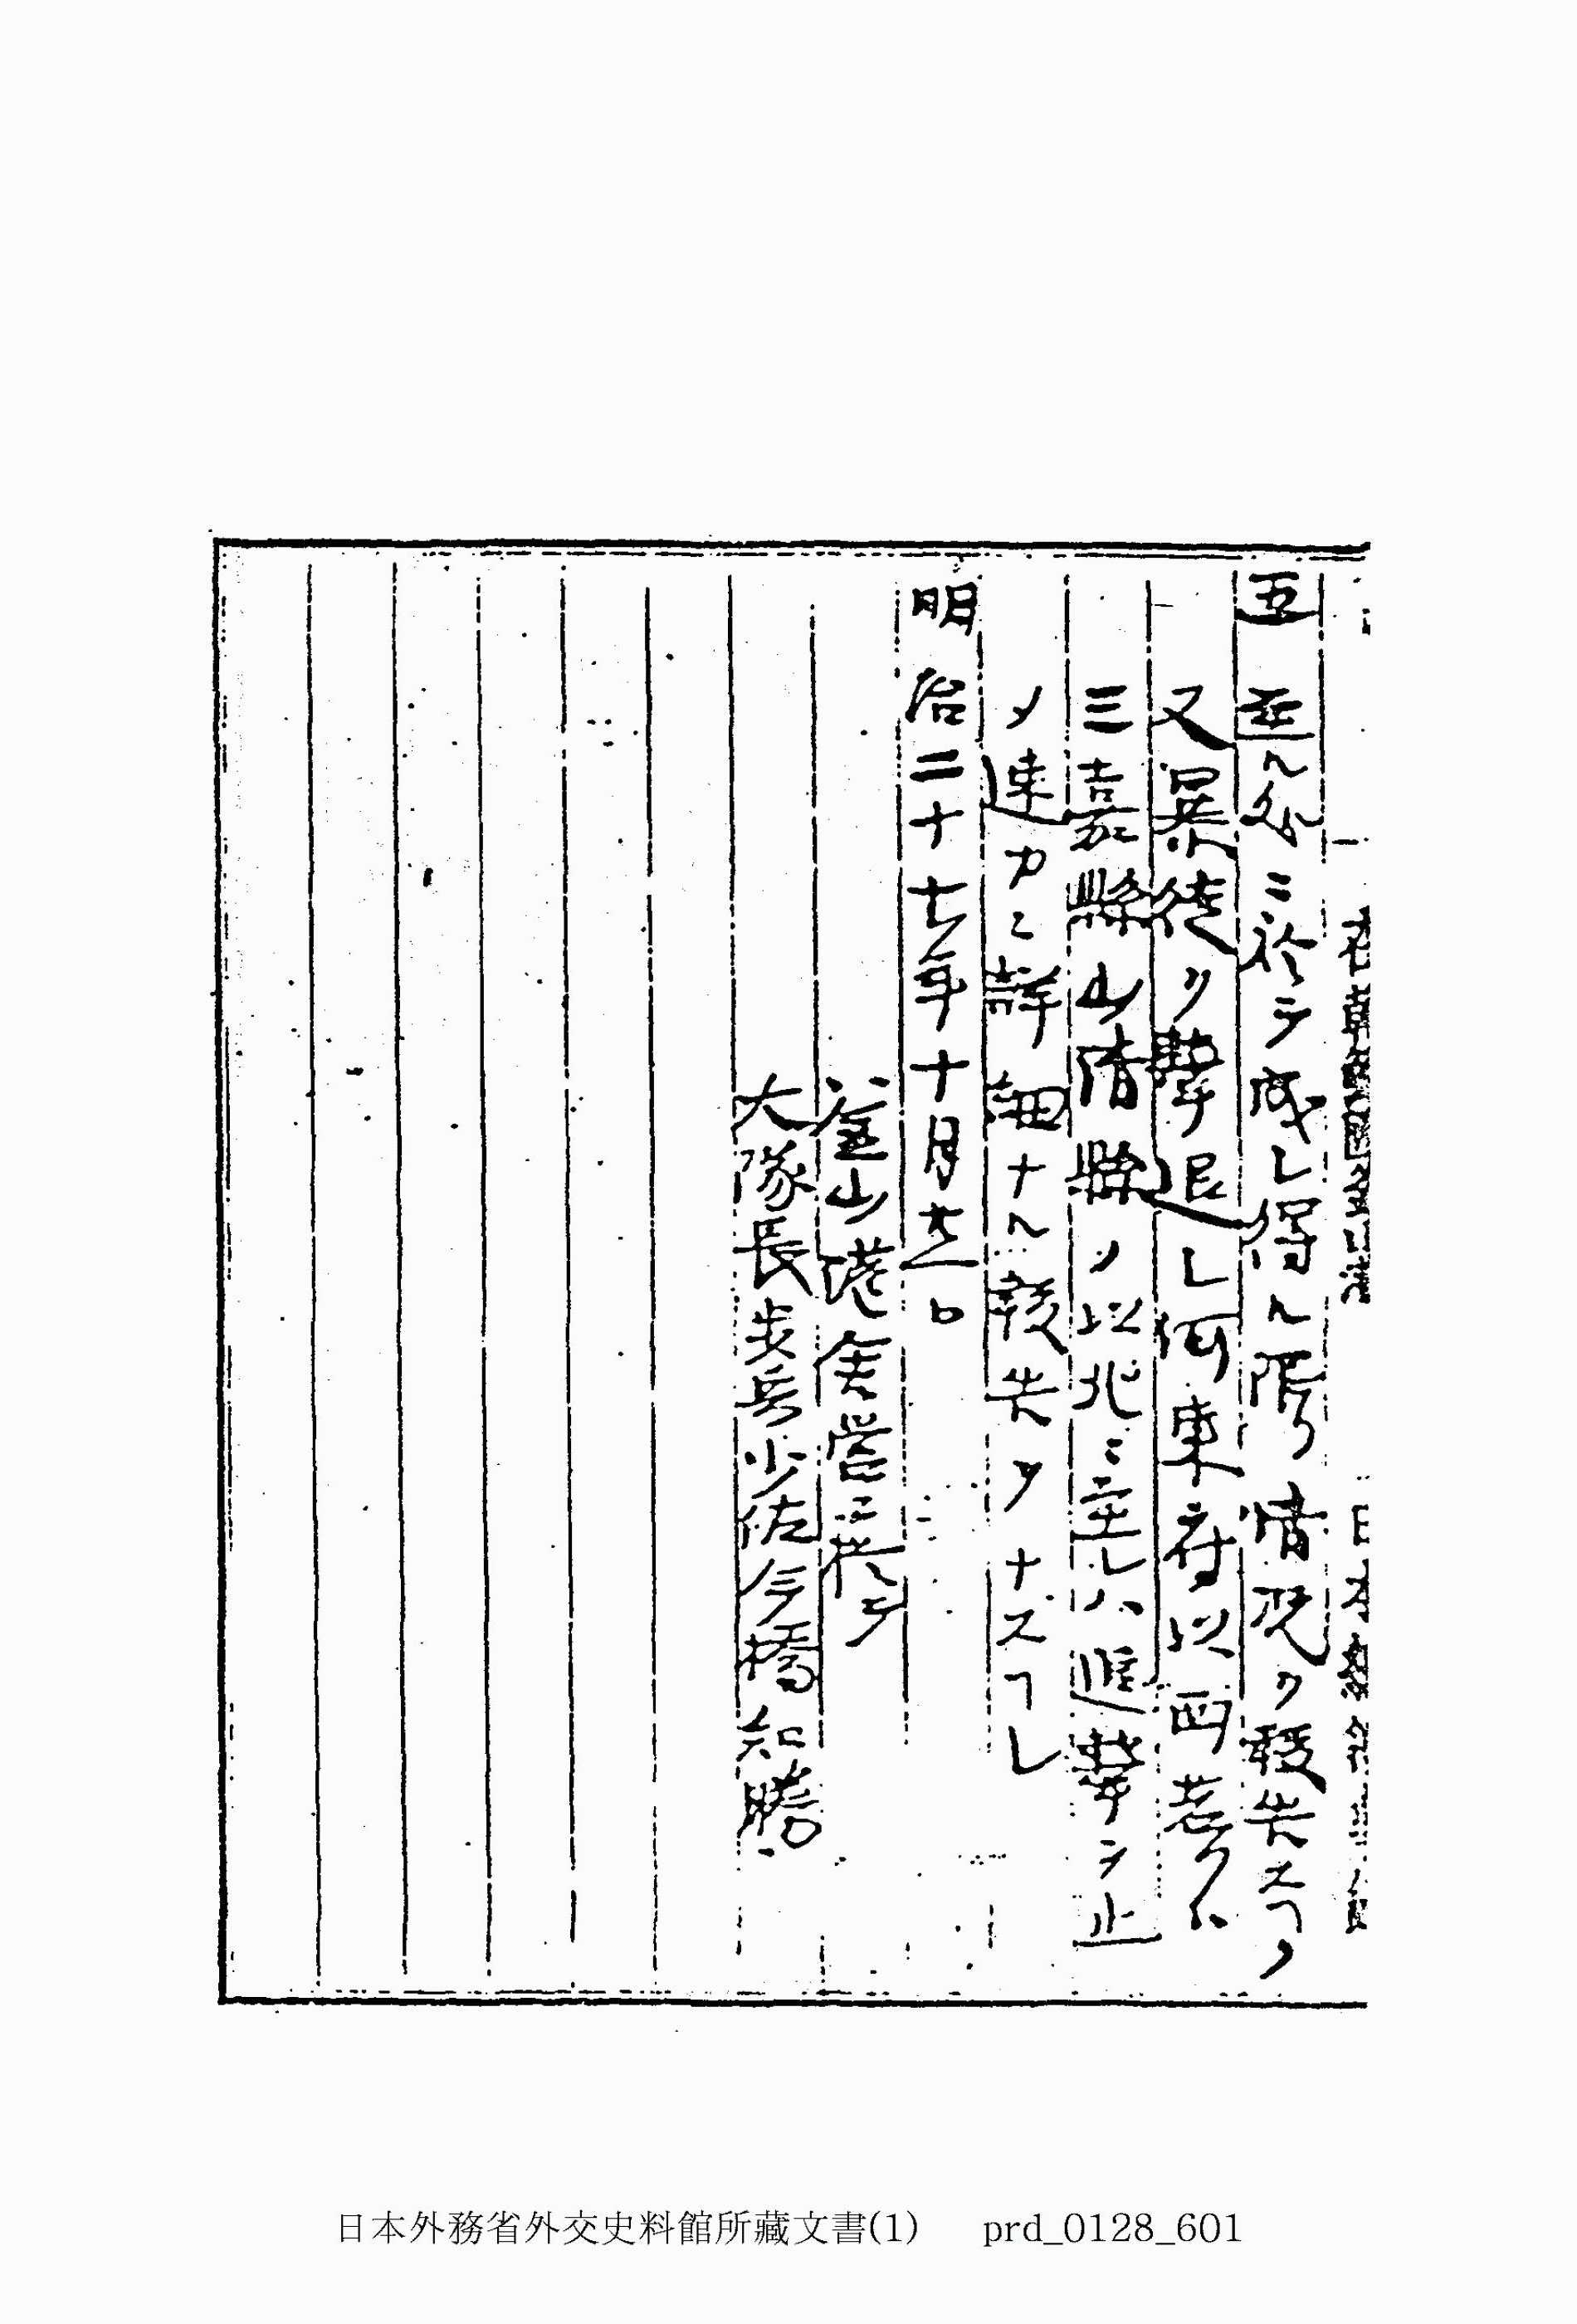 五 至ル処ニ於テ成シ得ル限リ情況ヲ報告スヘク
又暴徒ヲ撃退シ河東府以西若クハ
三嘉縣山清縣ノ以北ニ至レハ進撃ヲ止
メ速カニ詳細ナル報告ヲナスヘシ
明治二十七年十月 日
釜山港舎営ニ於テ
大隊長歩兵少佐今橋知勝
日本外務省外交史料館所藏文書(1) prd_0128_601